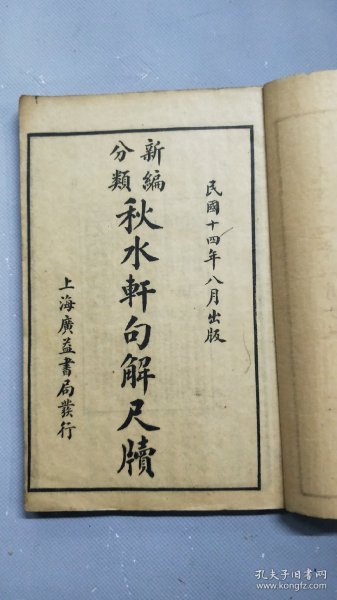 民國十四年八月出版
新編
分類
秋水軒句解尺牘
上海廣益書局發行
孔夫子旧书网